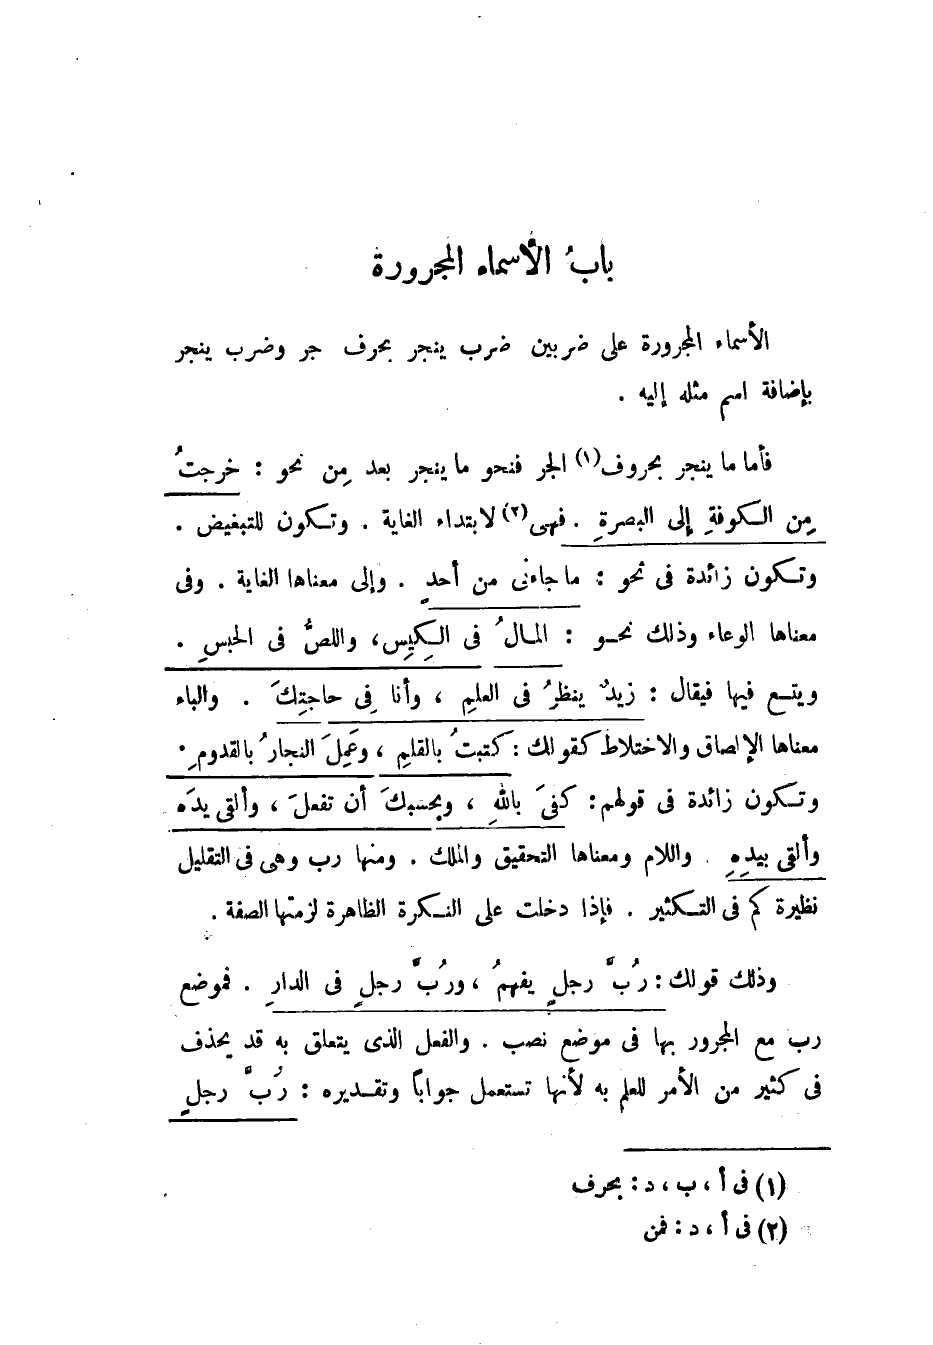 بابُ الأسماء المجرورة
الأسماء المجرورة على ضربين ضرب ينجر بحرف جر وضرب ينجر
بإضافة اسم مثله إليه .
فأما ما ينجر بحروف(١) الجر فنحو ما ينجر بعد مِن نحو : خرجتُ
مِن الكوفةِ إلى البصرةِ . فهى(٢) لابتداء الغاية . وتكون للتبغيض .
وتكون زائدة فى نحو : ما جاءنى من أحدٍ . وإلى معناها الغاية . وفى
معناها الوعاء وذلك نحو : المالُ فى الكِيسِ، واللصُّ فى الحبسِ .
ويتسع فيها فيقال : زيدٌ ينظرُ فى العلمِ ، وأنا فِى حاجتِكَ . والباء
معناها الإلصاق والاختلاط كقولك : كتبتُ بالقلمِ ، وعَمِلَ النجارُ بالقدومِ .
وتكون زائدة فى قولهم : كفىَ باللهِ ، وبحسبكَ أن تفعلَ ، وألقى يدَه
وألقى بيدِهِ . واللام ومعناها التحقيق والملك . ومنها رب وهى فى التقليل
نظيرة كم فى التكثير . فإذا دخلت على النكرة الظاهرة لزمتها الصفة .
وذلك قولك : رُبَّ رجلٍ يفهمُ ، ورُبَّ رجلٍ فى الدارِ . فموضع
رب مع المجرور بها فى موضع نصب . والفعل الذى يتعلق به قد يحذف
فى كثير من الأمر للعلم به لأنها تستعمل جواباً وتقديره : رُبَّ رجلٍ
(١) فى أ ، ب ، د : بحرف
(٢) فى أ ، د : فمن